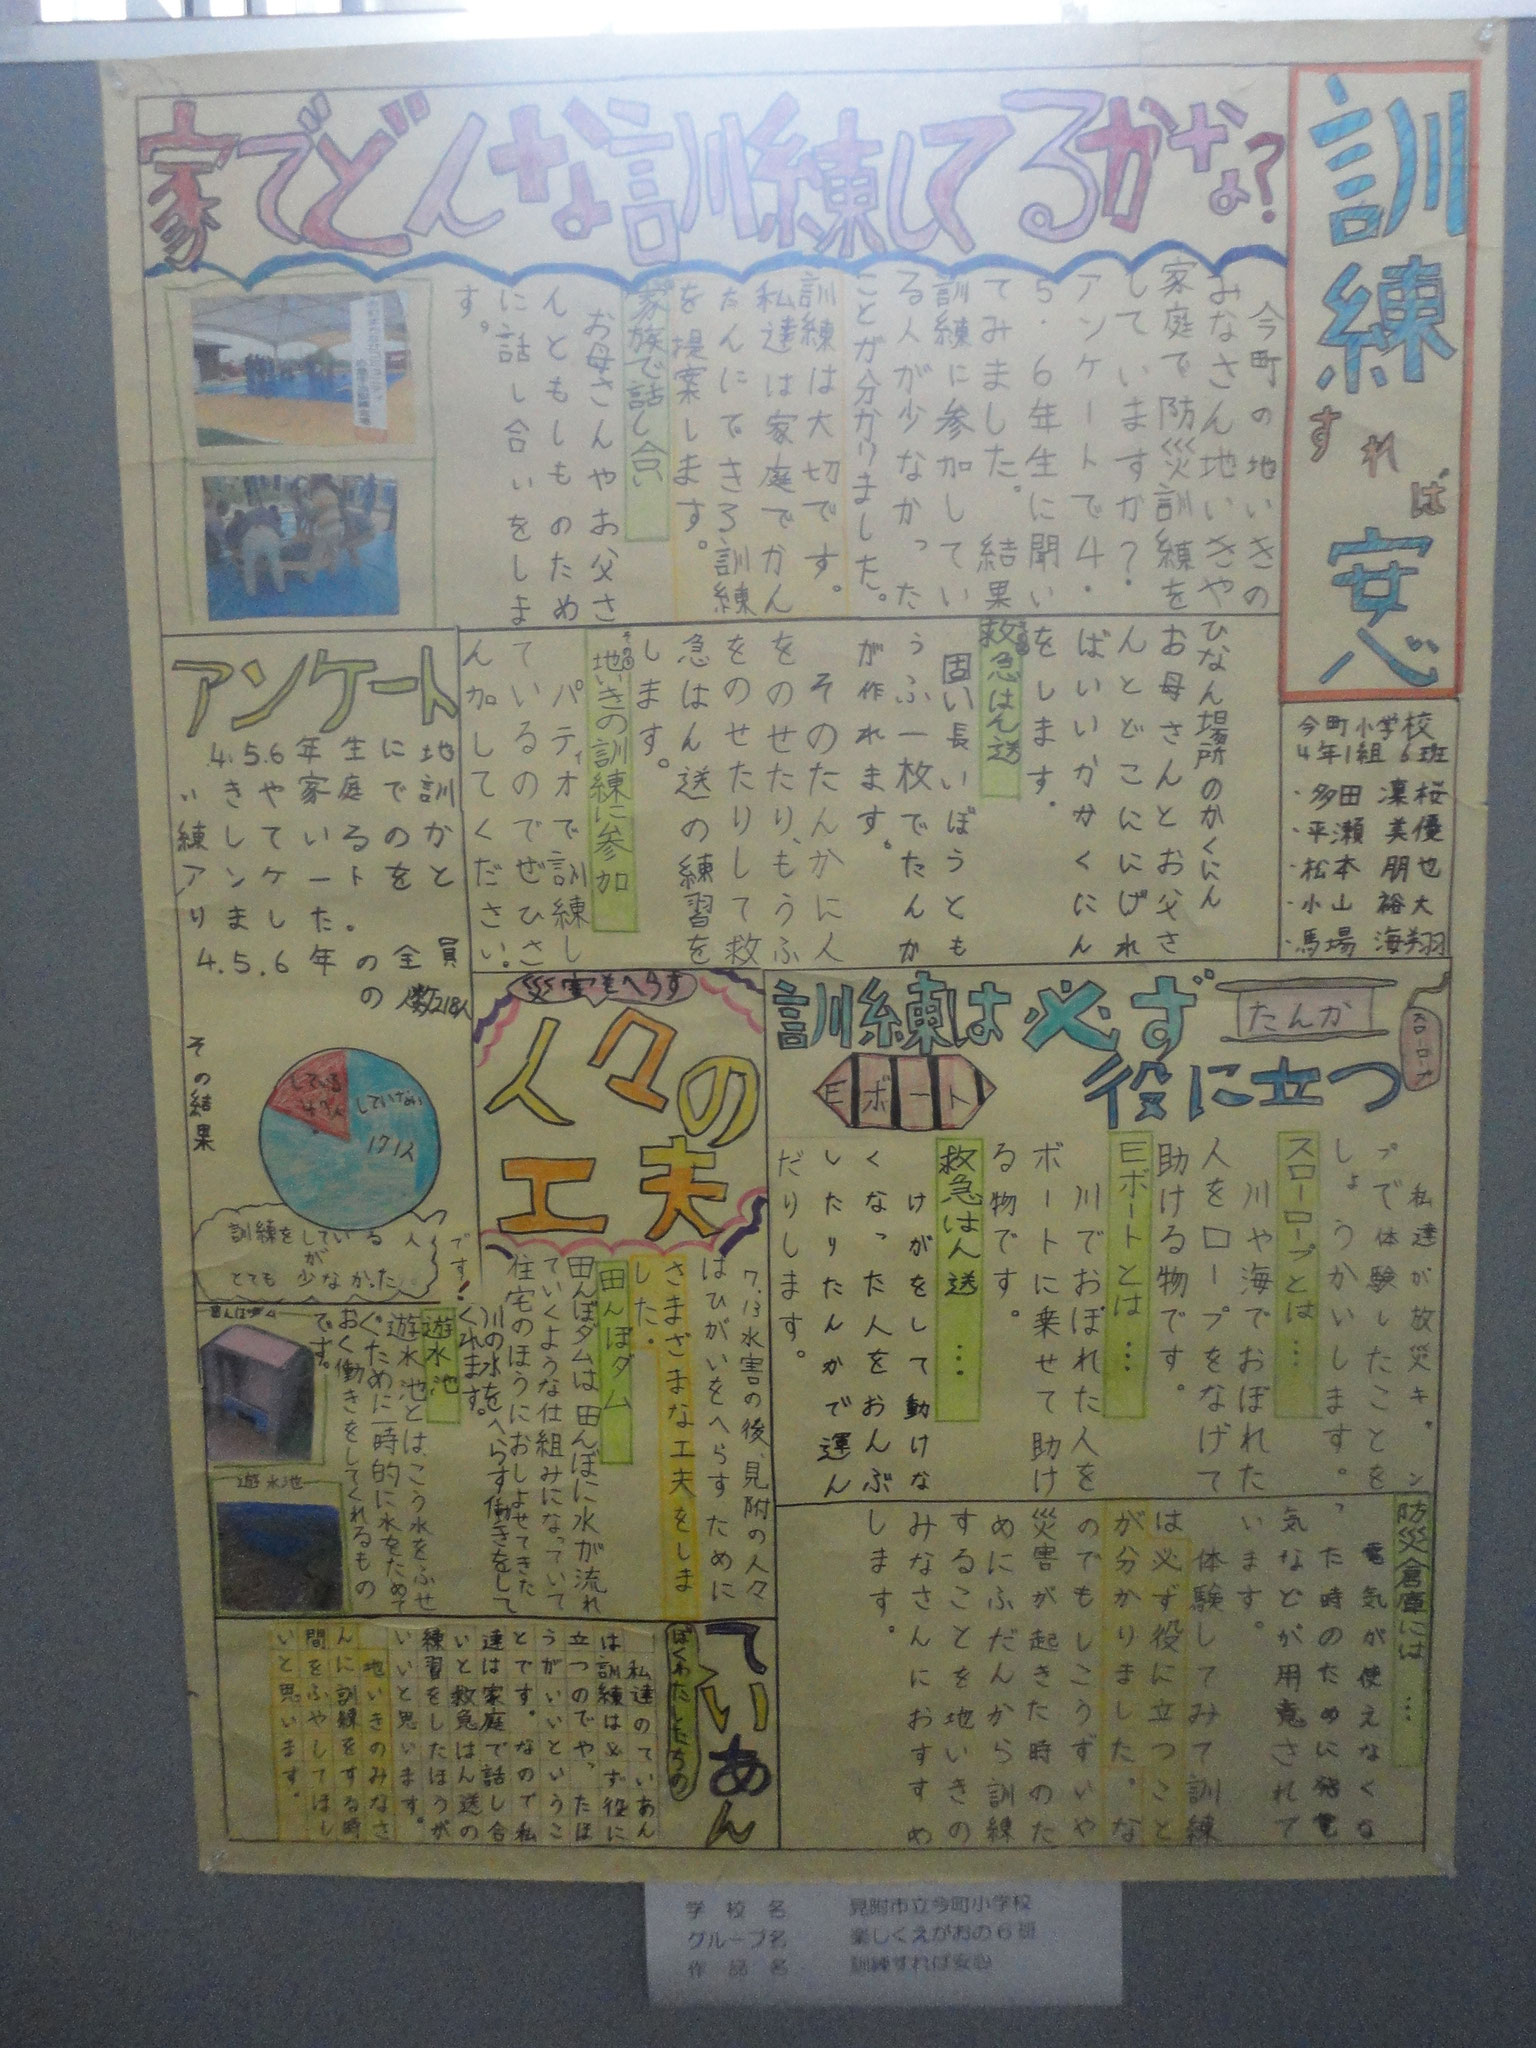 訓練すれば安心
今町小学校
4年1組 6班
・多田 凜桜
・平瀬 美優
・松本 朋也
・小山 裕大
・馬場 海翔
家でどんな訓練してるかな?
今町の地いきの
みなさん地いきや
家庭で防災訓練を
していますか?
アンケートで4・
5・6年生に聞い
てみました。結果
訓練に参加してい
る人が少なかった
ことが分かりました。
訓練は大切です。
私達は家庭でかん
たんにできる訓練
を提案します。
家族で話し合い
お母さんやお父さ
んともしものため
に話し合いをしま
す。
ひなん場所のかくにん
お母さんとお父さ
んとどこににげれ
ばいいかかくにん
をします。
救急はん送
固い長いぼうとも
うふ一枚でたんか
が作れます。
そのたんかに人
をのせたり、もうふ
をのせたりして救
急はん送の練習を
します。
地いきの訓練に参加
パティオで訓練し
ているのでぜひさ
ん加してください。
アンケート
4.5.6年生に地
いきや家庭での訓
練しているのかと
アンケートをと
りました。
4.5.6年の全員
の人数218人
その結果
している
47人
していない
171人
訓練をしている人
が
とても少なかった
です!
訓練は必ず
役に立つ
たんか
スローロープ
Eボート
私達が放災キャン
プで体験したことを
しょうかいします。
スローロープとは…
川や海でおぼれた
人をロープをなげて
助ける物です。
Eボートとは…
川でおぼれた人を
ボートに乗せて助け
る物です。
救急はん送…
けがをして動けな
くなった人をおんぶ
したりたんかで運ん
だりします。
防災倉庫には…
電気が使えなくな
った時のために発電
気などが用意されて
います。
体験してみて訓練
は必ず役に立つこと
が分かりました。な
のでもしこうずいや
災害が起きた時のた
めにふだんから訓練
することを地いきの
みなさんにおすすめ
します。
災害をへらす
人々の
工夫
7.13水害の後、見附の人々
はひがいをへらすために
さまざまな工夫をしま
した。
田んぼダム
田んぼダムは田んぼに水が流れ
ていくような仕組みになっていて
住宅のほうにおしよせてきた
川の水をへらす働きをして
くれます。
遊水池
遊水池とは、こう水をふせ
ぐために一時的に水をためて
おく働きをしてくれるもの
です。
田んぼダム
遊水池
ぼくわたしたちの
ていあん
私達のていあん
は訓練は必ず役に
立つのでやったほ
うがいいというこ
とです。なので私
達は家庭で話し合
いと救急はん送の
練習をしたほうが
いいと思います。
地いきのみなさ
んに訓練をする時
間をふやしてほし
いと思います。
学校名 見附市立今町小学校
グループ名 楽しくえがおの6班
作品名 訓練すれば安心